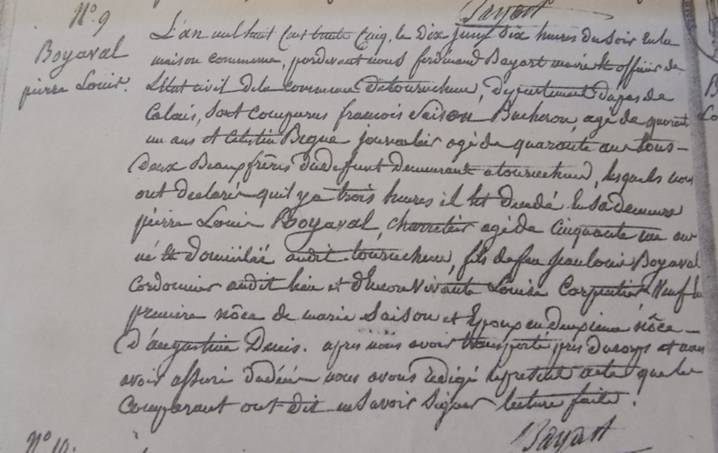 Bayart
N.o 9
Boyaval
pierre Louis.
L'an mil huit Cent trente Cinq, le Dix juin Dix heures du soir en la
maison commune, pardevant nous ferdinand Bayart maire et officier de
L'Etat civil de la commune de tournehem, département du pas de
Calais, sont comparus francois Saison Bucheron, agé de quarante
un ans et Célestin Begue journalier agé de quarante ans tous
Deux Beaux frères du défunt demeurant a tournehem, lesquels nous
ont declaré qu'il y a trois heures il est décédé en sa demeure
pierre Louis Boyaval, charretier agé de Cinquante un an
né et domicilié audit tournehem, fils de feu jean louis Boyaval
Cordonnier audit lieu et d'encore vivante Louise Carpentier, Veuf en
première nôce de marie Saison et Epoux en deuxième nôce
D'augustine Denis. apres nous avoir transporté près du corps et nous
avoir assuré du décès nous avons redigé le present acte que les
Comparant ont dit ne savoir signer lecture faite.
Bayart
N.o 10.